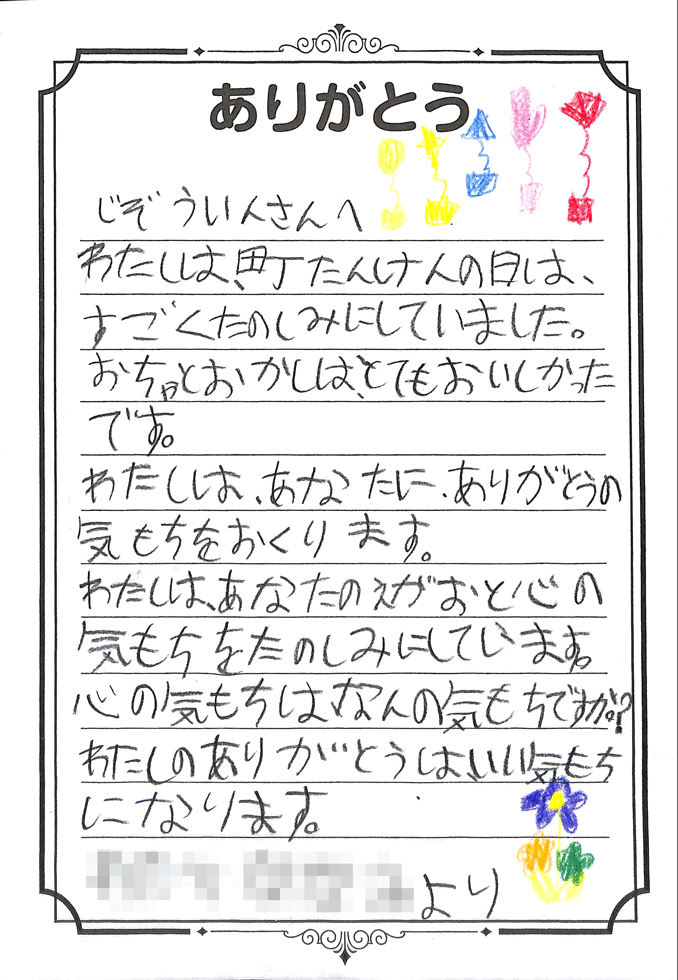 ありがとう
じぞういんさんへ
わたしは、町たんけんの日は、
すごくたのしみにしていました。
おちゃとおかしは、とてもおいしかった
です。
わたしは、あなたに、ありがとうの
気もちをおくります。
わたしは、あなたのえがおと心の
気もちをたのしみにしています。
心の気もちはなんの気もちですか。?
わたしのありがとうは、いい気もち
になります。
より